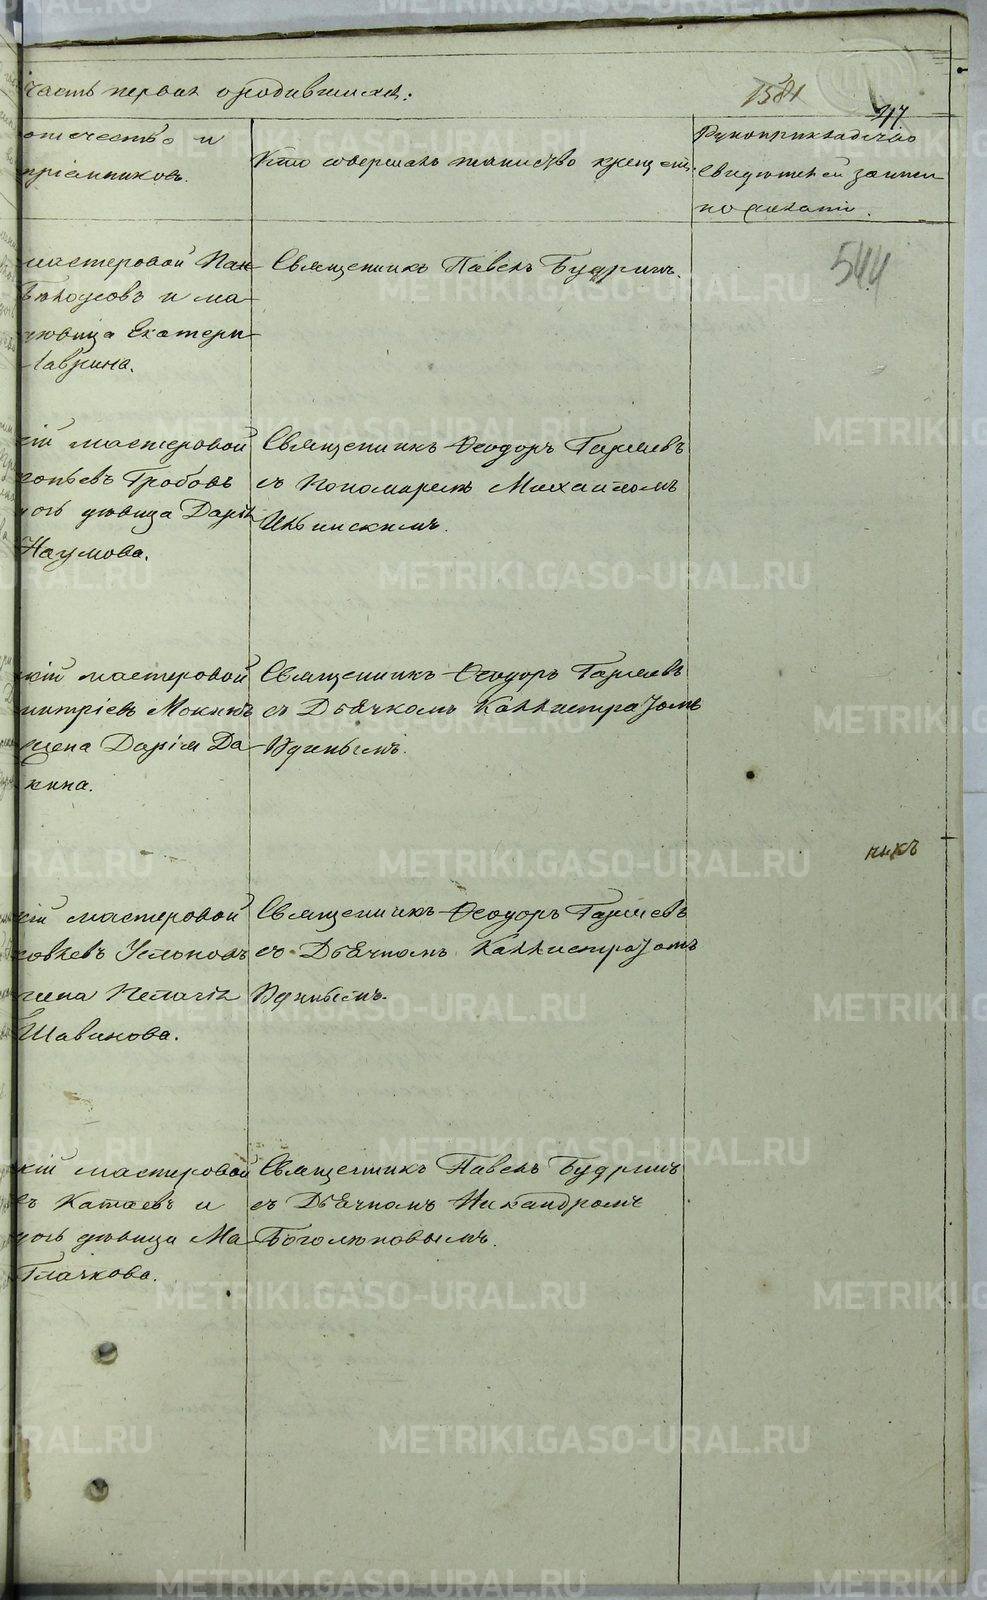 часть первая о родившихся.
1581
217
отечество и
пріемниковъ.
Кто совершалъ таинство крещенія.
Рукоприкладство
свидетелей записи
по желанію.
544
мастеровой Пав-
Бѣлоусовъ и ма-
дѣвица Екатери-
Лаврина.
Священникъ Павелъ Будринъ.
кій мастеровой
Гробовъ
дѣвица Дарья
Наумова.
Священникъ Ѳеодоръ Гаряевъ
съ Пономаремъ Михаиломъ
Ильинскимъ.
кій мастеровой
митріевъ
жена Дарія Да-
кина.
Священникъ Ѳеодоръ Гаряевъ
съ Дьячкомъ Каллистратомъ
Удинымъ.
никъ
кій мастеровой
жена Пелагія
Шавинова.
Священникъ Ѳеодоръ Гаряевъ
съ Дьячкомъ Каллистратомъ
Удинымъ.
кій мастеровой
въ Катаевъ и
дѣвица Ма-
Глачкова.
Священникъ Павелъ Будринъ
съ Дьячкомъ Никандромъ
Боголюбовымъ.
METRIKI.GASO-URAL.RU